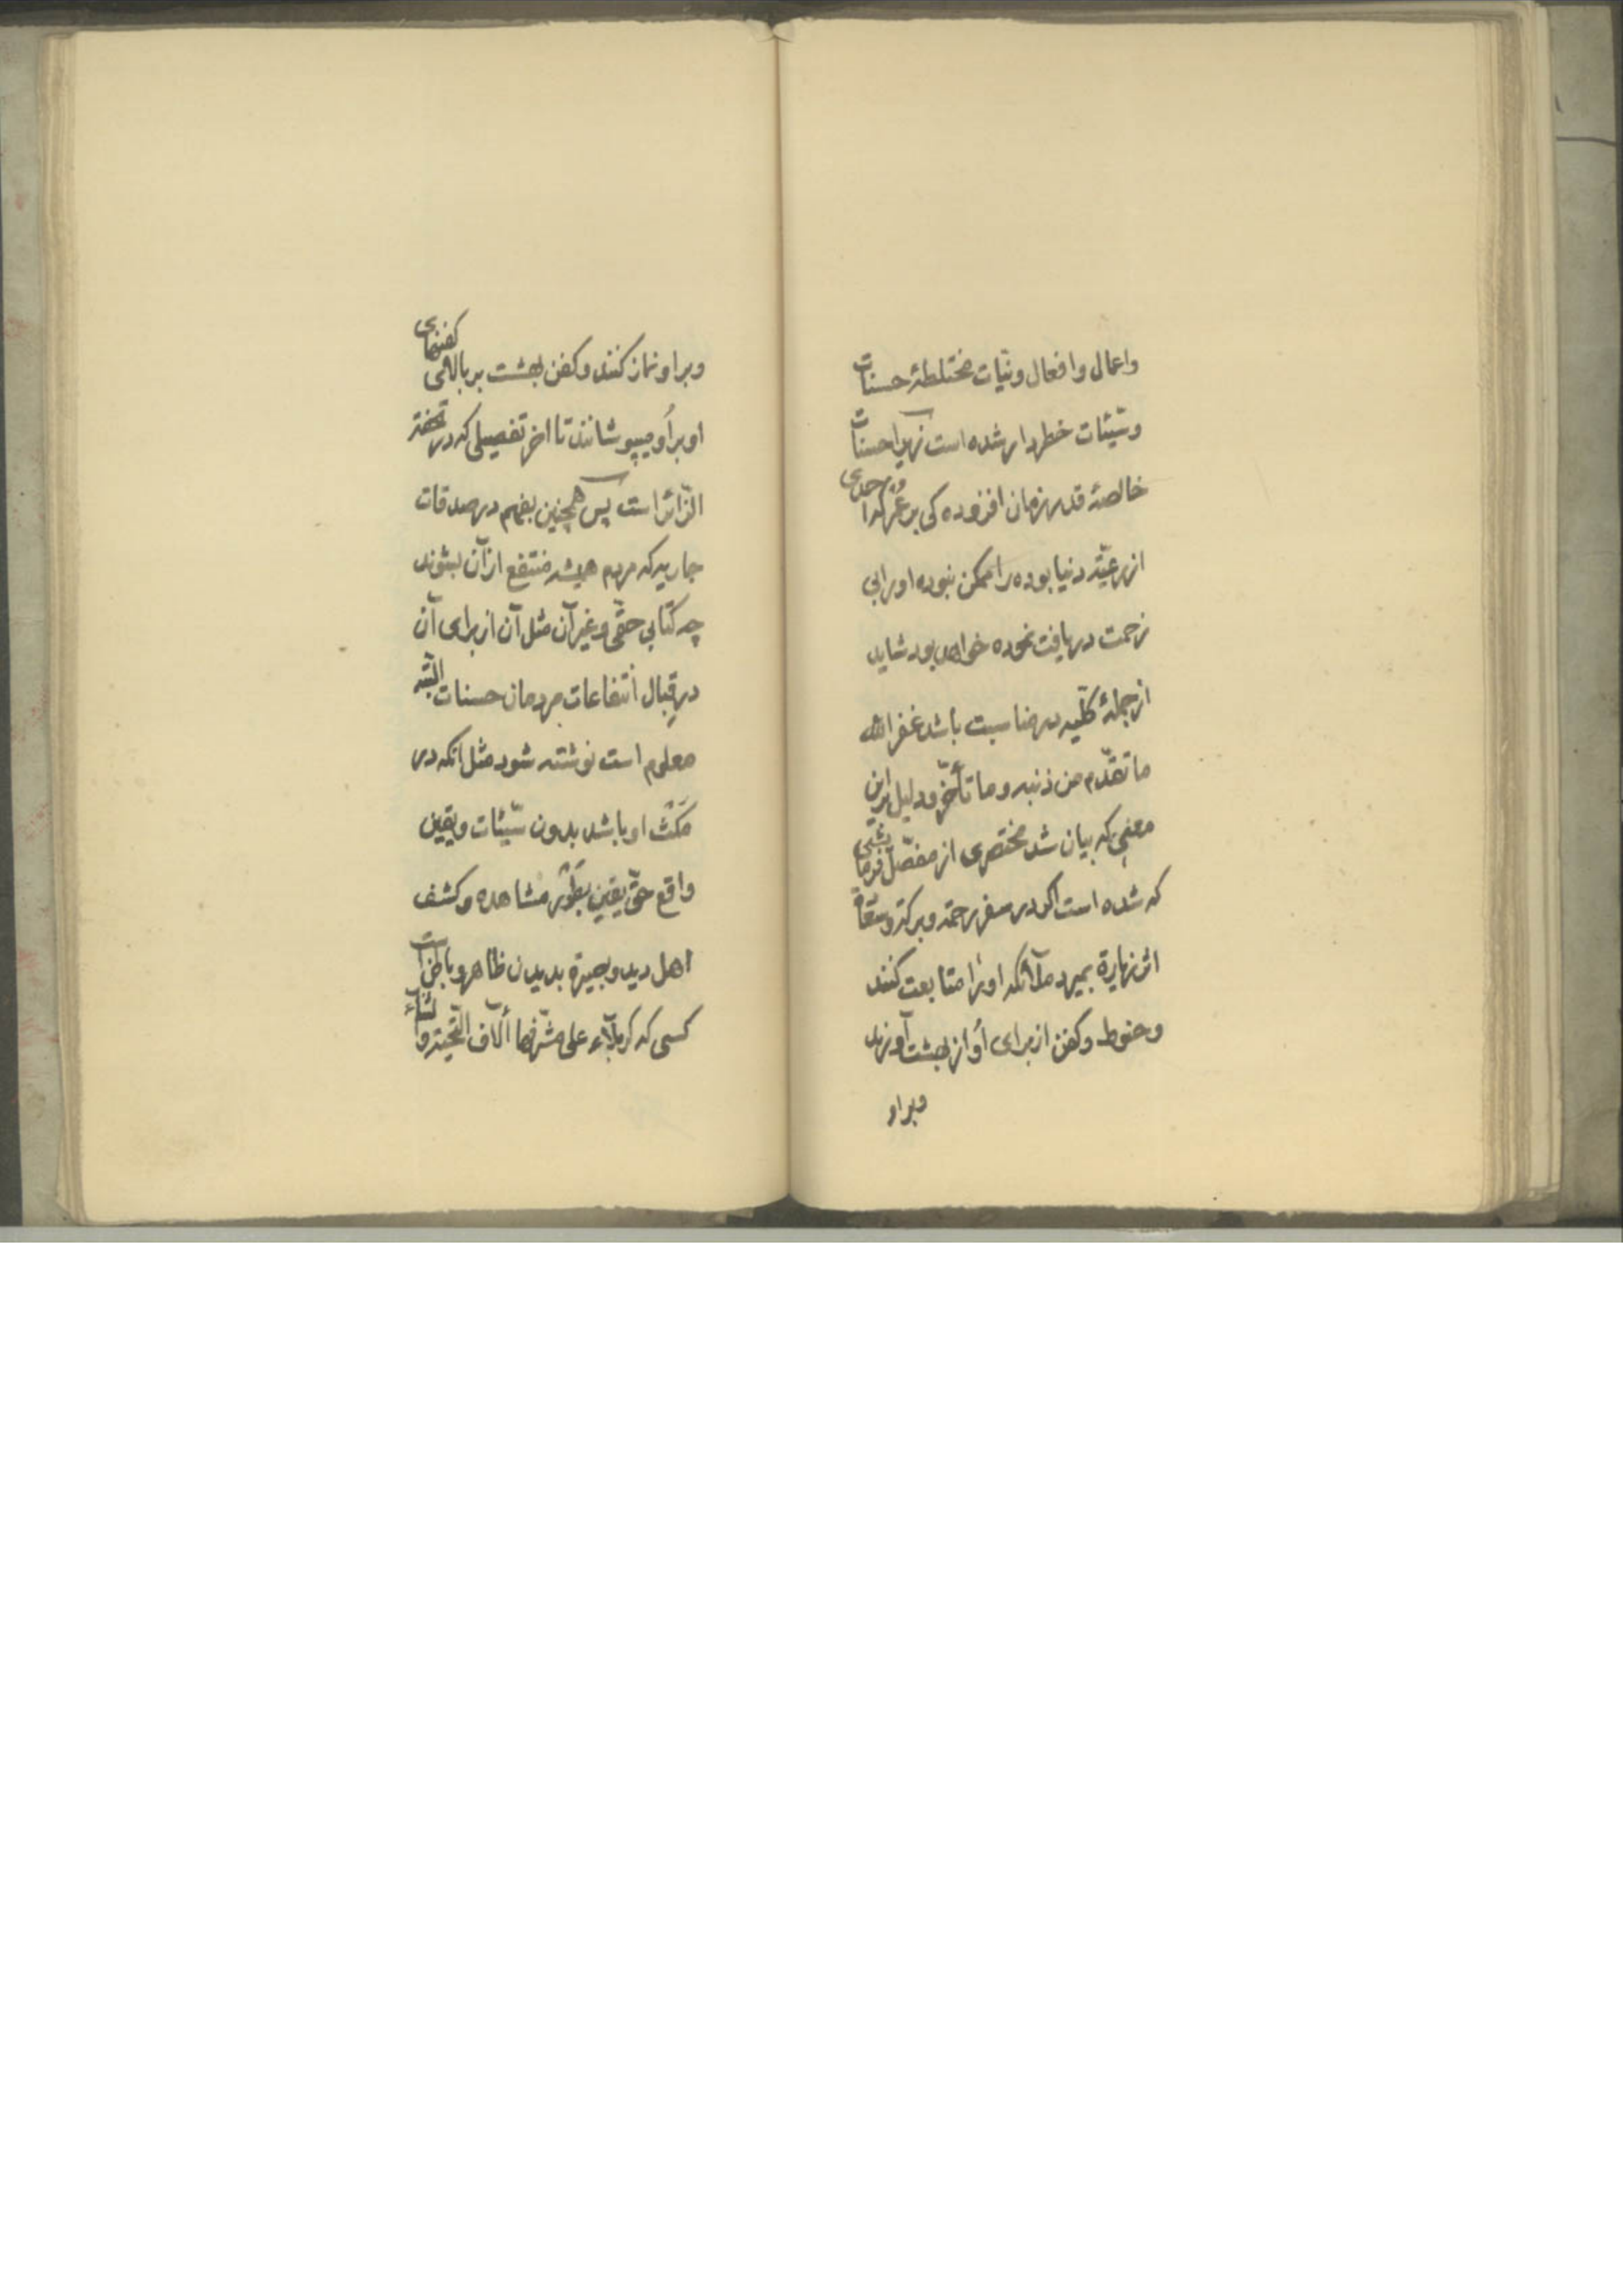 واعمال وافعال ونیّات مختلطهٔ حسنات
وسیّئات خطردار شده است زیرا حسنات
خالصهٔ قدر زمان افزوده کی بر عمر
از رعیّة دنیا بوده را ممکن نبوده او را بی
زحمت دریافت نموده خواهد بود شاید
از جملهٔ کلّیه در مناسبت باشد غفر الله
ما تقدّم من ذنبه وما تأخّر ودلیل براین
معنی که بیان شد مختصری از مفصّل فرمایشی
که شده است اگر در سفر رحمة وبرکة
زیارة بمیرد ملآئکه او را متابعت کنند
وحنوط وکفن از برای اُو از بهشت آورند
وبراو
وبراو نماز کنند وکفن بهشت بر بالای کفنهای
او براُو میپوشانند تا اخر تفصیلی که در تحفة
الزّائر است پس همچنین بفهم در صدقات
جاریه که مردم همیشه منتفع از آن بشوند
چه کتابی حقّی وغیرآن مثل آن از برای آن
در قِبال اُنتفاعات مردمان حسنات البتّه
معلوم است نوشته شود مثل آنکه در
مَکث او باشد بدون سیّئات ویقین
واقع حتّی یقین بطَور مشاهده وکشف
اهل دید وبصیرة بدیدن ظاهر وباطن است
کسی که کربلآء علی مشرّفها اُلآف التّحیّة والثّنآء